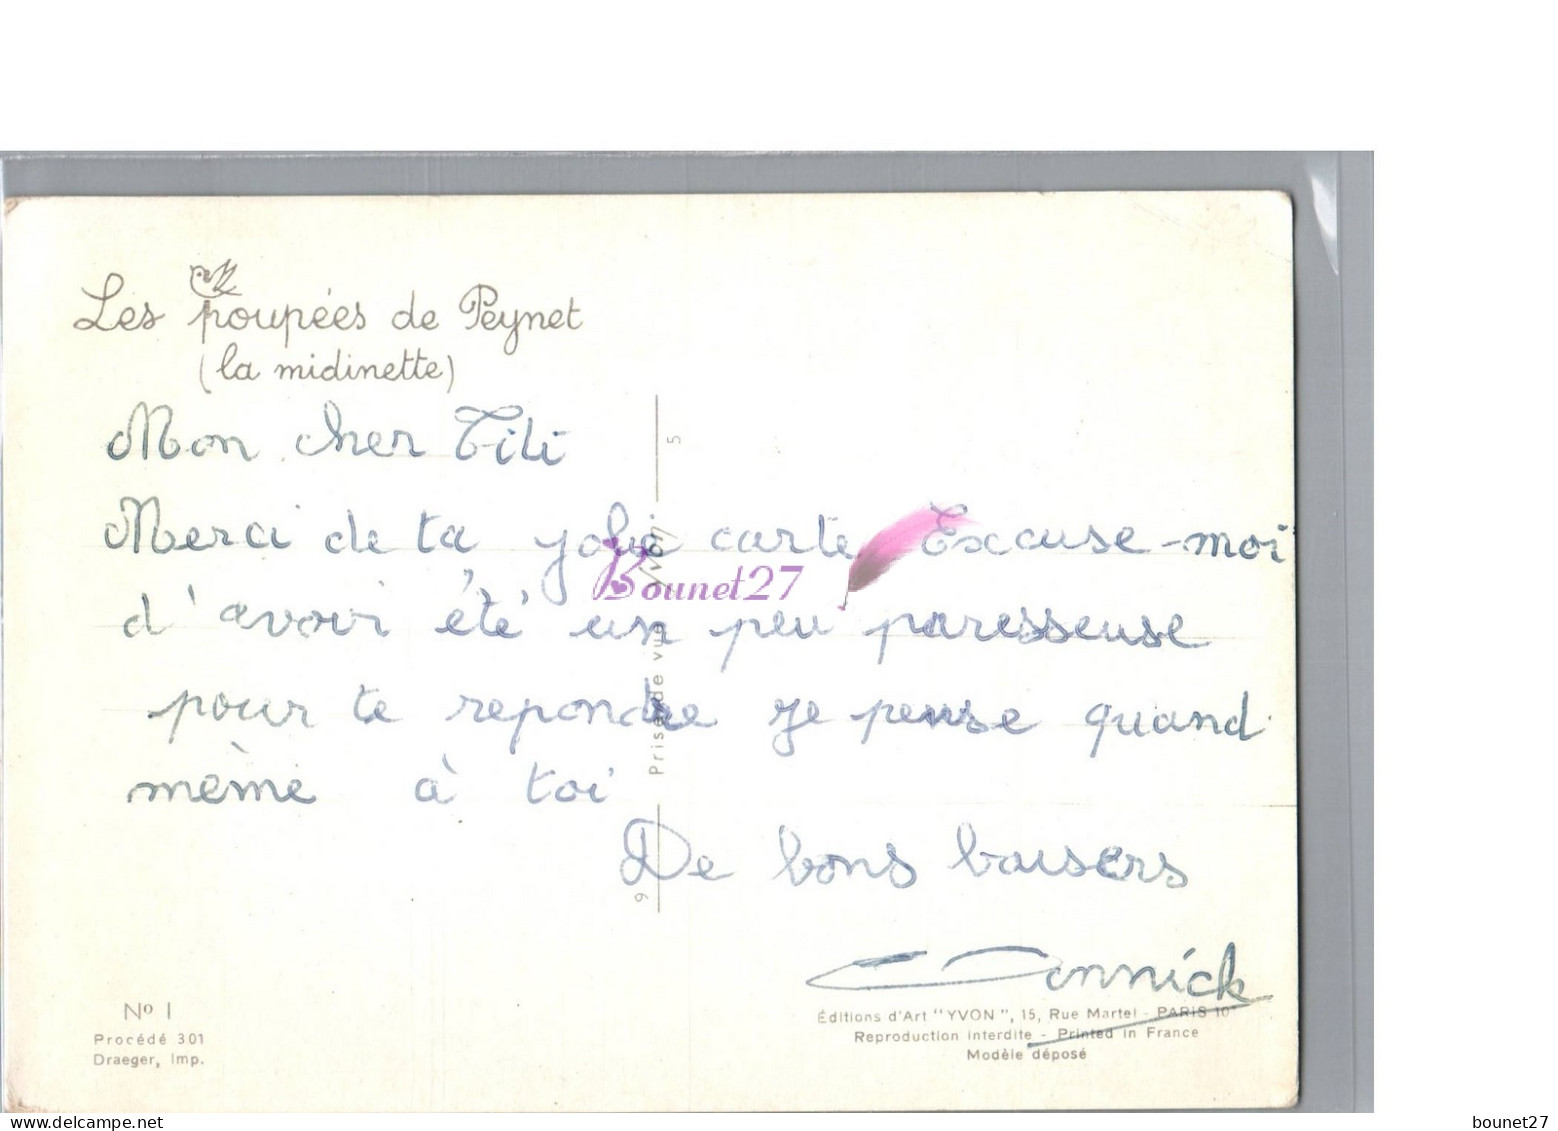 Les poupées de Peynet
(la midinette)
Mon cher Titi
Merci de ta jolie carte Excuse-moi
d'avoir été un peu paresseuse
pour te repondre je pense quand
même à toi
De bons baisers
Annick
5
Yvon
Prise de vue
9
Bounet27
No 1
Procédé 301
Draeger, Imp.
Éditions d'Art "YVON", 15, Rue Martel - PARIS 10e
Reproduction interdite - Printed in France
Modèle déposé
bounet27